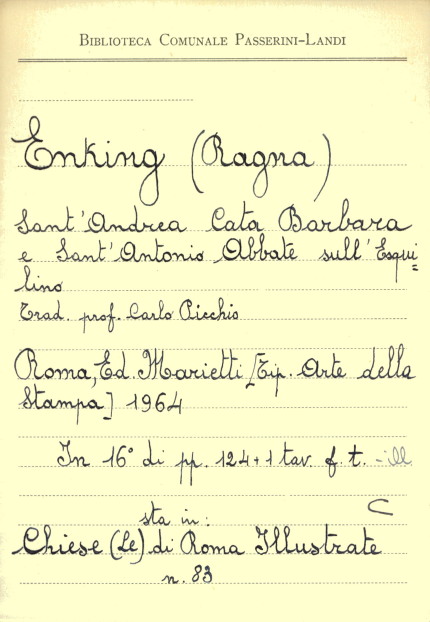 BIBLIOTECA COMUNALE PASSERINI-LANDI
Enking (Ragna)
Sant'Andrea Cata Barbara
e Sant'Antonio Abbate sull'Esqui=
lino
Trad. prof. Carlo Picchio
Roma, Ed. Marietti [Tip. Arte della
Stampa] 1964
In 16° di pp. 124+1 tav. f. t. - ill
C
sta in:
Chiese (Le) di Roma Illustrate
n. 83